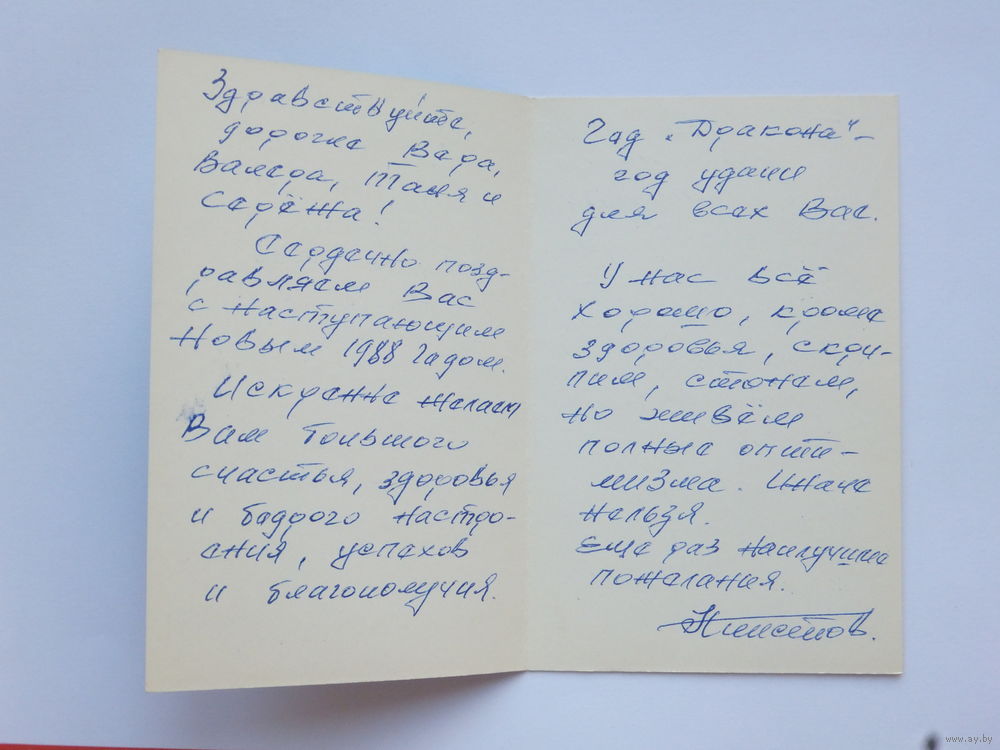 Здравствуйте,
дорогие Вера,
Валера, Таня и
Серёжа!
Сердечно позд-
равляем Вас
с наступающим
Новым 1988 Годом.
Искренне желаем
Вам большого
счастья, здоровья
и бодрого настро-
ения, успехов
и благополучия.
Год "Дракона" -
год удачи
для всех Вас.
У нас всё
хорошо, кроме
здоровья, скри-
пим, стонем,
но живём
полные опти-
мизма. Иначе
нельзя.
Еще раз наилучшие
пожелания.
www.ay.by